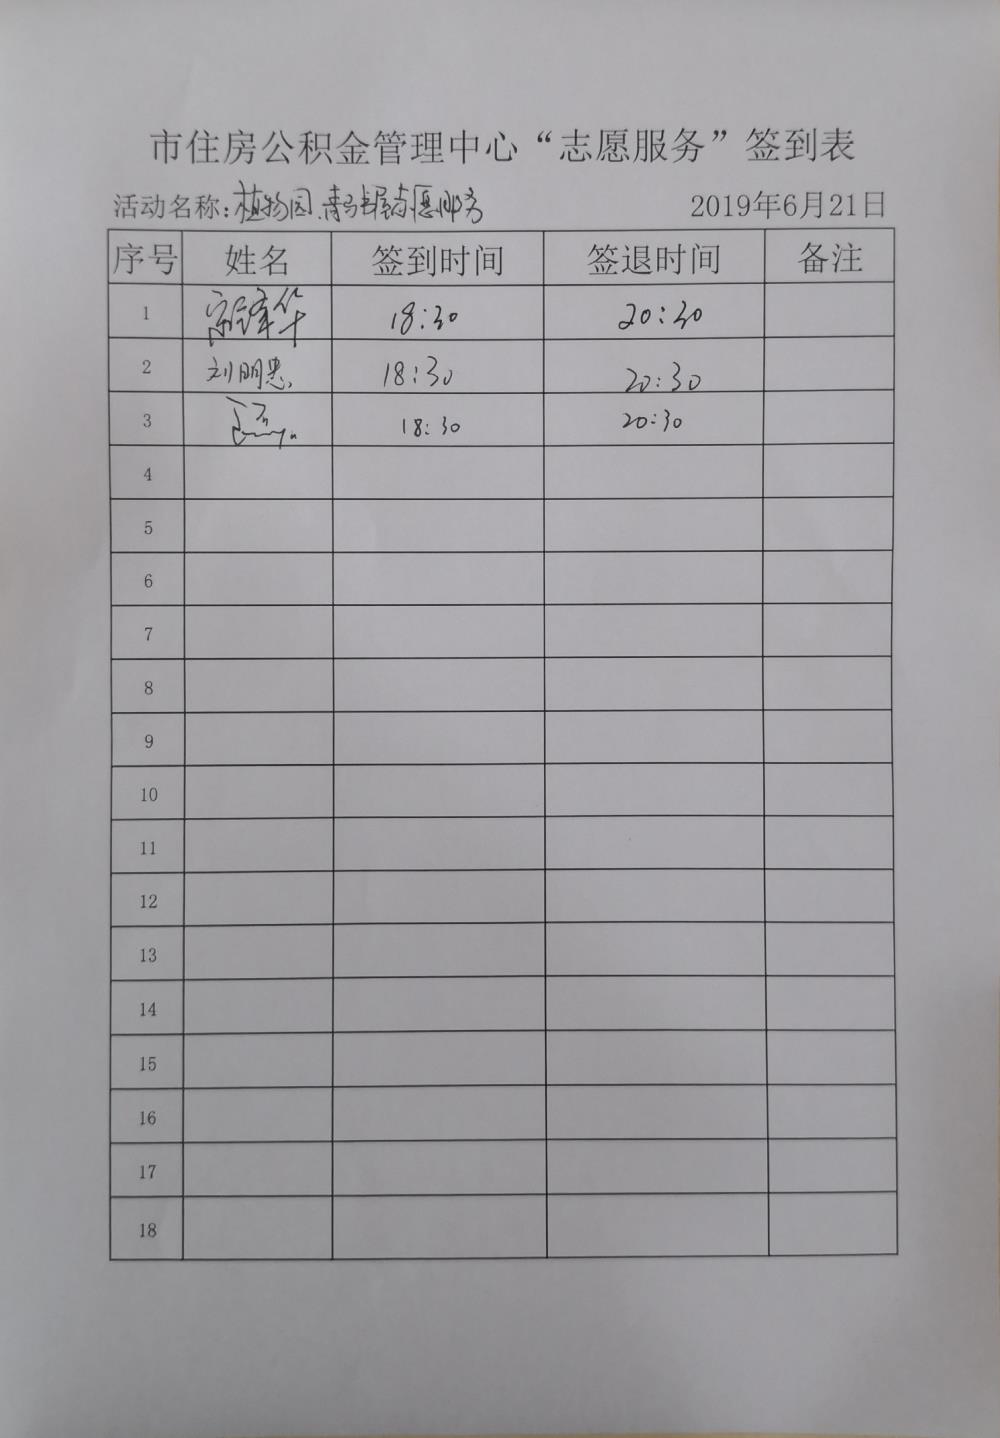 市住房公积金管理中心“志愿服务”签到表
活动名称：植物园、青马书屋志愿服务 2019年6月21日
序号 姓名 签到时间 签退时间 备注
1 华 18:30 20:30
2 刘明惠 18:30 20:30
3 18:30 20:30
4
5
6
7
8
9
10
11
12
13
14
15
16
17
18